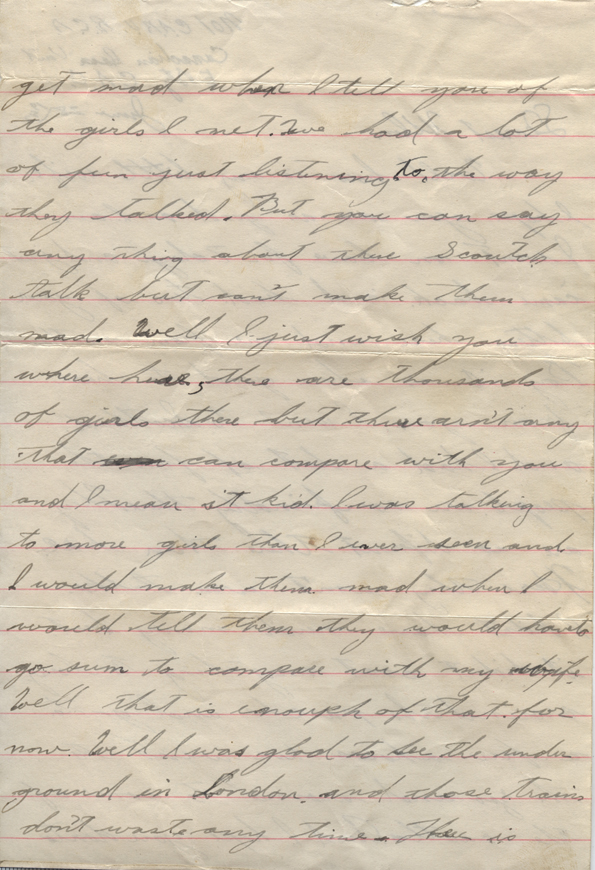 get mad when I tell you of
the girls I met. We had a lot
of fun just listening to, the way
they talked. But you can say
any thing about there Scoutch
talk but can't make them
mad. Well I just wish you
where here, there are thousands
of girls there but there arn't any
that can compare with you
and I mean it kid. I was talking
to more girls than I ever seen and
I would make them mad when I
would tell them they would have to
go sum to compare with my wife.
Well that is enough of that for
now. Well I was glad to see the under
ground in London, and those trains
don't waste any time. is